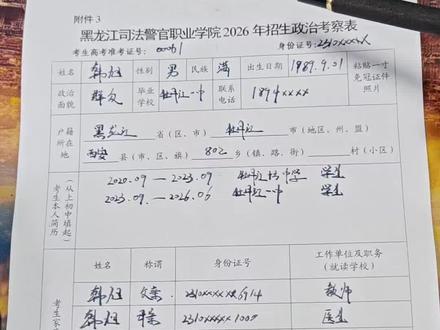 附件 3
黑龙江司法警官职业学院 2026 年招生政治考察表
考生高考准考证号: 00061 身份证号: 2310xxxxx
姓名 韩旭 性别 男 民族 满 出生日期 1989.9.01 粘贴一寸免冠证件照片
政治面貌 群众 毕业学校 牡丹江一中 联系电话 1894xxxx
户籍所在地 黑龙江 省(区、市) 牡丹江 市(地区、州、盟)
西安 县(市、区、旗) 802 乡(镇、路、街) 村(小区)
考生本人简历(从上初中填起)
2020.09 — 2023.09 牡丹江 中学 学生
2023.09 — 2026.06 牡丹江一中 学生
姓名 称谓 身份证号 工作单位及职务(就读学校)
韩 父亲 2310xxxxxx6914 教师
韩旭 2310xxxxxx1007 医生
考生家